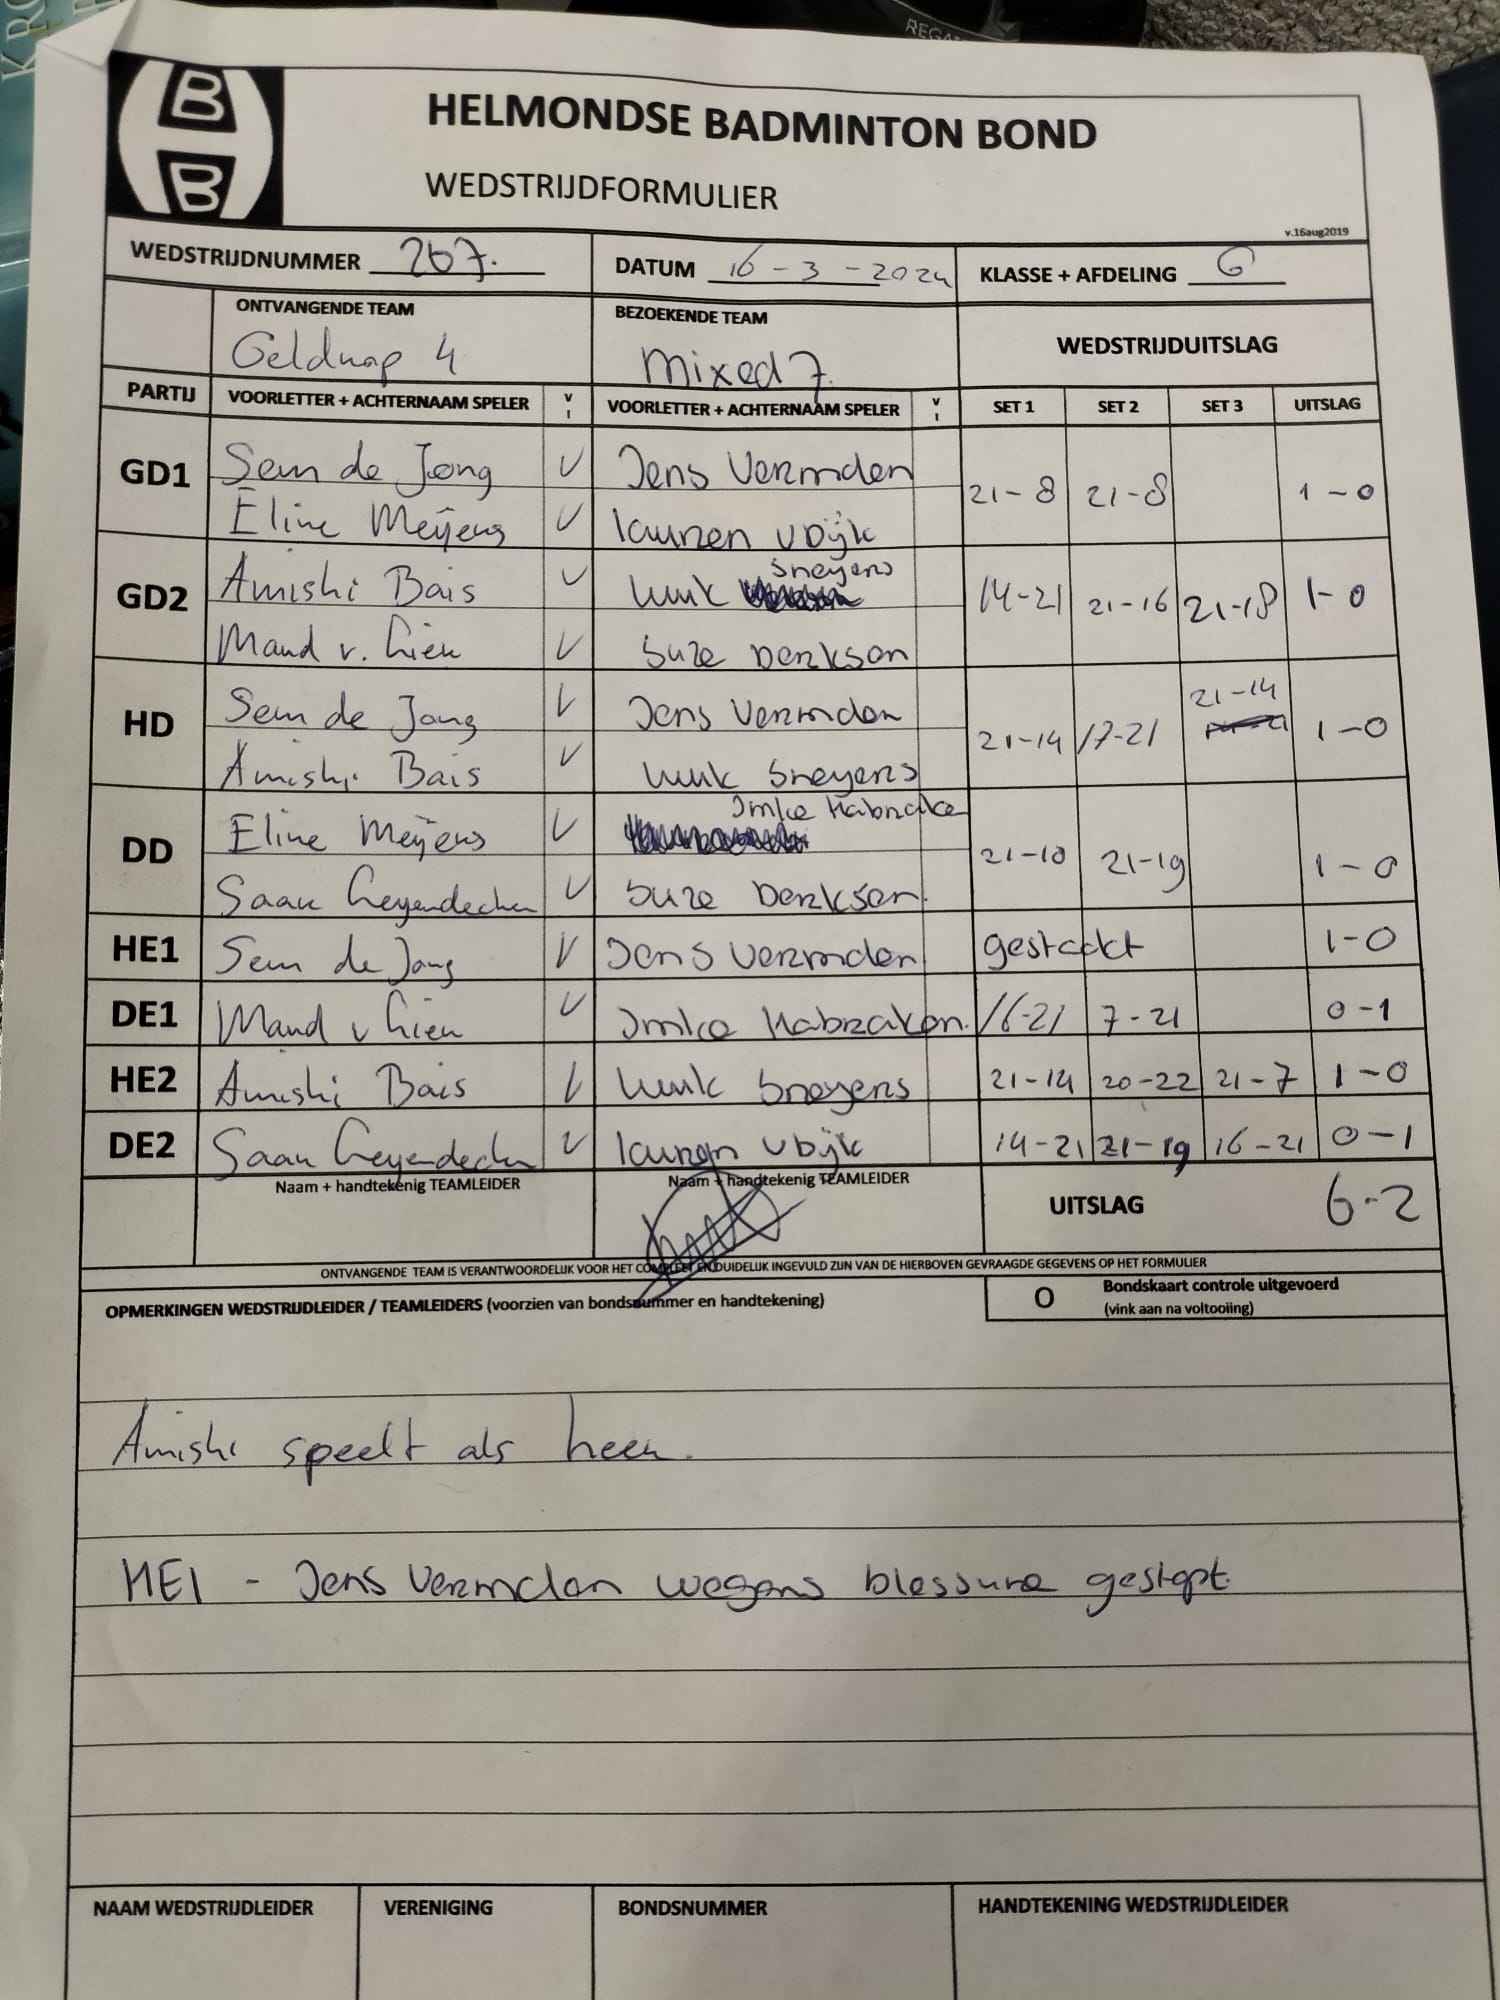 REGA
B
B
HELMONDSE BADMINTON BOND
WEDSTRIJDFORMULIER
v.16aug2019
WEDSTRIJDNUMMER 267.
DATUM 16-3-2024
KLASSE + AFDELING 6
ONTVANGENDE TEAM
Geldrop 4
BEZOEKENDE TEAM
Mixed 7.
WEDSTRIJDUITSLAG
PARTIJ VOORLETTER + ACHTERNAAM SPELER V I VOORLETTER + ACHTERNAAM SPELER V I SET 1 SET 2 SET 3 UITSLAG
GD1 Sem de Jong V Jens Vermden 21-8 21-8 1-0
Eline Meijers V laurien v Dijk
GD2 Amishi Bais V luuk Sneyers 14-21 21-16 21-18 1-0
Maud v. Lieu V Suze Derksen
HD Sem de Jong V Jens Vermden 21-14 17-21 21-14 1-0
Amishi Bais V luuk Sneyers
DD Eline Meijers V Imke Habraken 21-10 21-19 1-0
Saar Leyendecker V Suze Derksen.
HE1 Sem de Jong V Jens Vermden gestaakt 1-0
DE1 Maud v Lieu V Imke Habraken. 16-21 7-21 0-1
HE2 Amishi Bais V luuk Sneyers 21-14 20-22 21-7 1-0
DE2 Saar Leyendecker V laurien v Dijk 14-21 21-19 16-21 0-1
Naam + handtekenig TEAMLEIDER
Naam + handtekenig TEAMLEIDER
UITSLAG 6-2
ONTVANGENDE TEAM IS VERANTWOORDELIJK VOOR HET COMPLEET EN DUIDELIJK INGEVULD ZIJN VAN DE HIERBOVEN GEVRAAGDE GEGEVENS OP HET FORMULIER
OPMERKINGEN WEDSTRIJDLEIDER / TEAMLEIDERS (voorzien van bondsnummer en handtekening)
O Bondskaart controle uitgevoerd
(vink aan na voltooiing)
Amishi speelt als heer.
HE1 - Jens Vermden wegens blessure gestopt.
NAAM WEDSTRIJDLEIDER
VERENIGING
BONDSNUMMER
HANDTEKENING WEDSTRIJDLEIDER